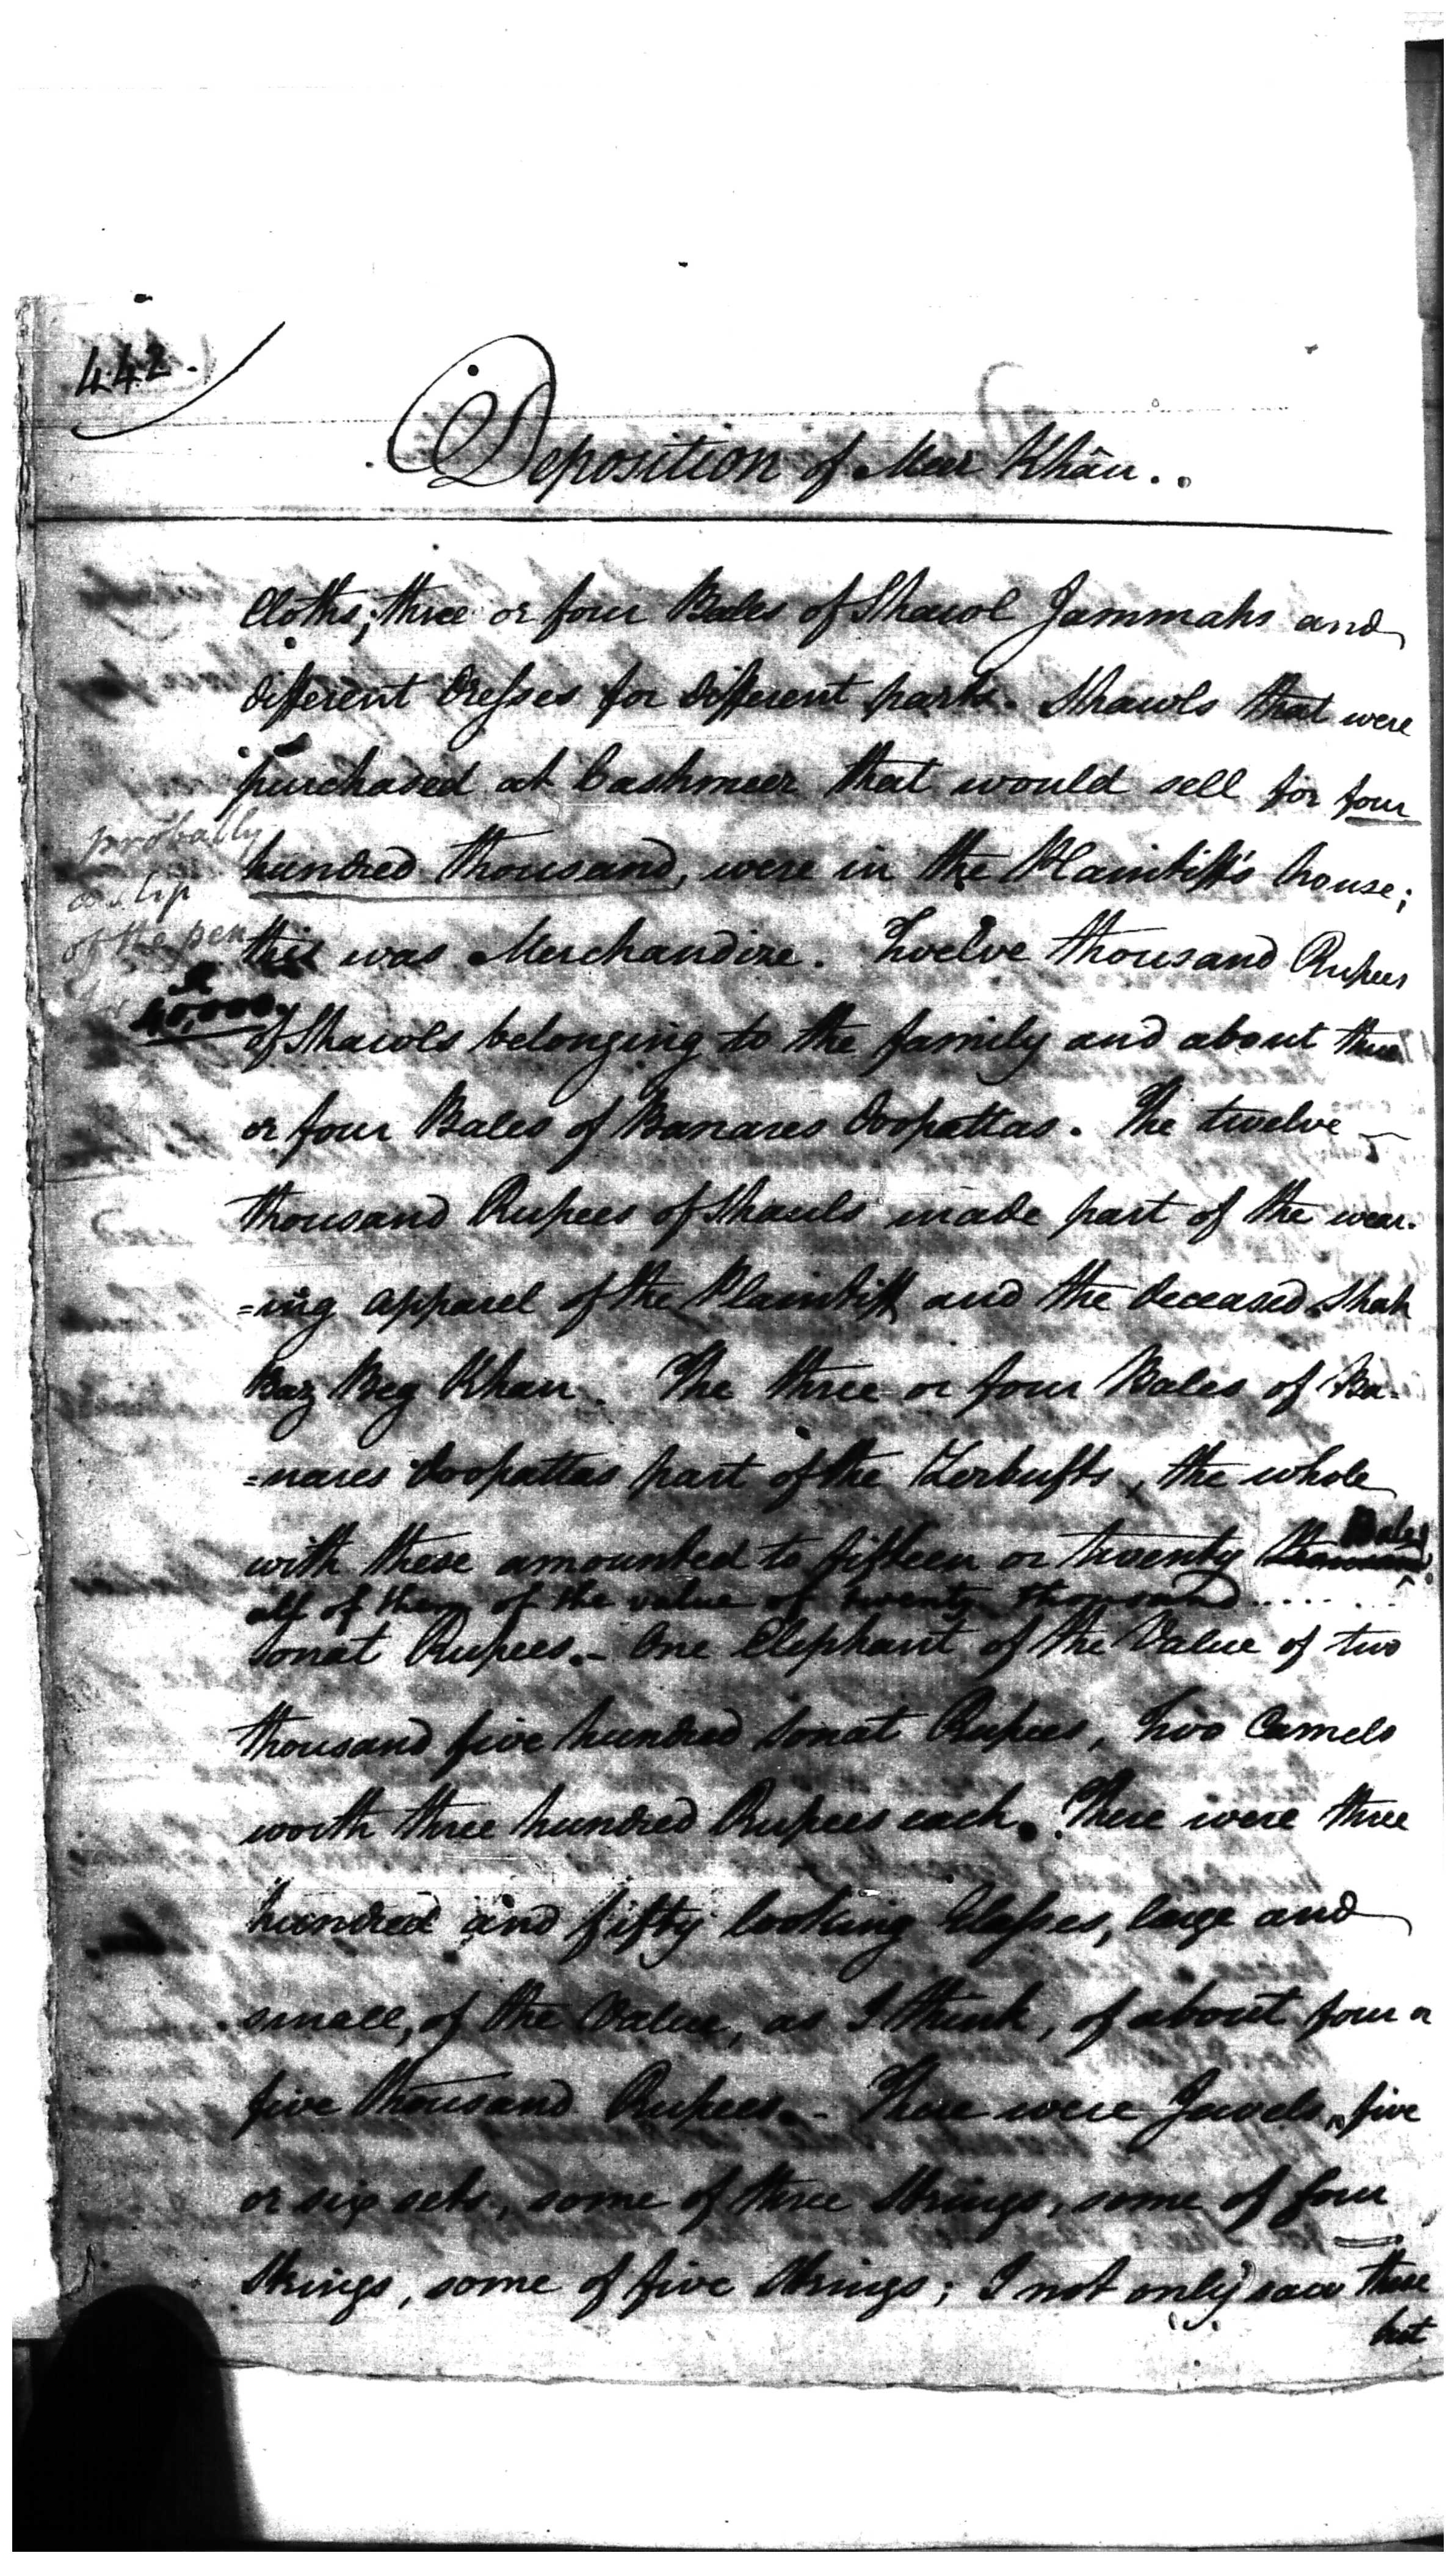 442.
Deposition of Meer Khân..
Cloths; three or four Bales of Shawl Jammahs and
different dresses for different parts. Shawls that were
purchased at Cashmeer that would sell for four
probably
hundred thousand, were in the Plaintiff's house;
a slip
of the pen
this was Merchandize. Twelve thousand Rupees
40,000.
of Shawls belonging to the family and about three
or four Bales of Banares doopattas. The twelve
thousand Rupees of Shauls made part of the wear-
=ing apparel of the Plaintiff and the deceased Shah
Baz Beg Khan. The three or four Bales of Ba-
=nares doopattas part of the Zerbufts, the whole
with these amounted to fifteen or twenty thousand Bales
all of them of the value of twenty thousand......
Sonat Rupees.- One Elephant of the Value of two
thousand five hundred Sonat Rupees, Two Camels
worth three hundred Rupees each. There were three
hundred and fifty looking Glasses, large and
small, of the Value, as I think, of about four or
five thousand Rupees.- There were Jewels, five
or six sets, some of three Strings, some of four
Strings, some of five Strings; I not only saw these
but